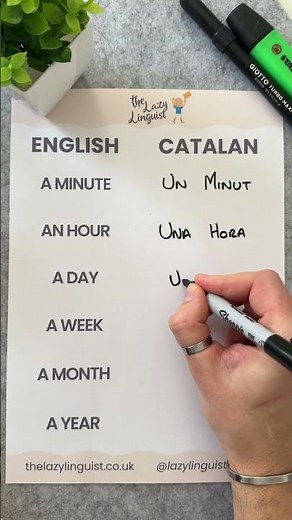 the
Lazy
Linguist
ENGLISH CATALAN
A MINUTE UN MINUT
AN HOUR UNA HORA
A DAY U
A WEEK
A MONTH
A YEAR
thelazylinguist.co.uk @lazylinguist
GIOTTO TURBO MAXI
Sharpie